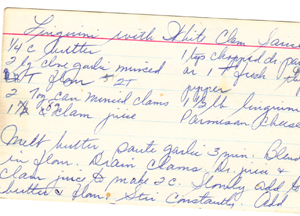 Linguini with White Clam Sauce
1/4 c butter 1 tsp chopped dr par
2 lg clove garlic minced or 1 T fresh
2 T flour pepper
2 7oz can minced clams 1/2 lb linguini
1 1/2 8oz clam juice Parmesan Cheese
Melt butter saute garlic 3 min. Blend
in flour. Drain clams. Dr. juice &
clam juice to make 2 c. Slowly add to
butter & flour. Stir Constantly. Add